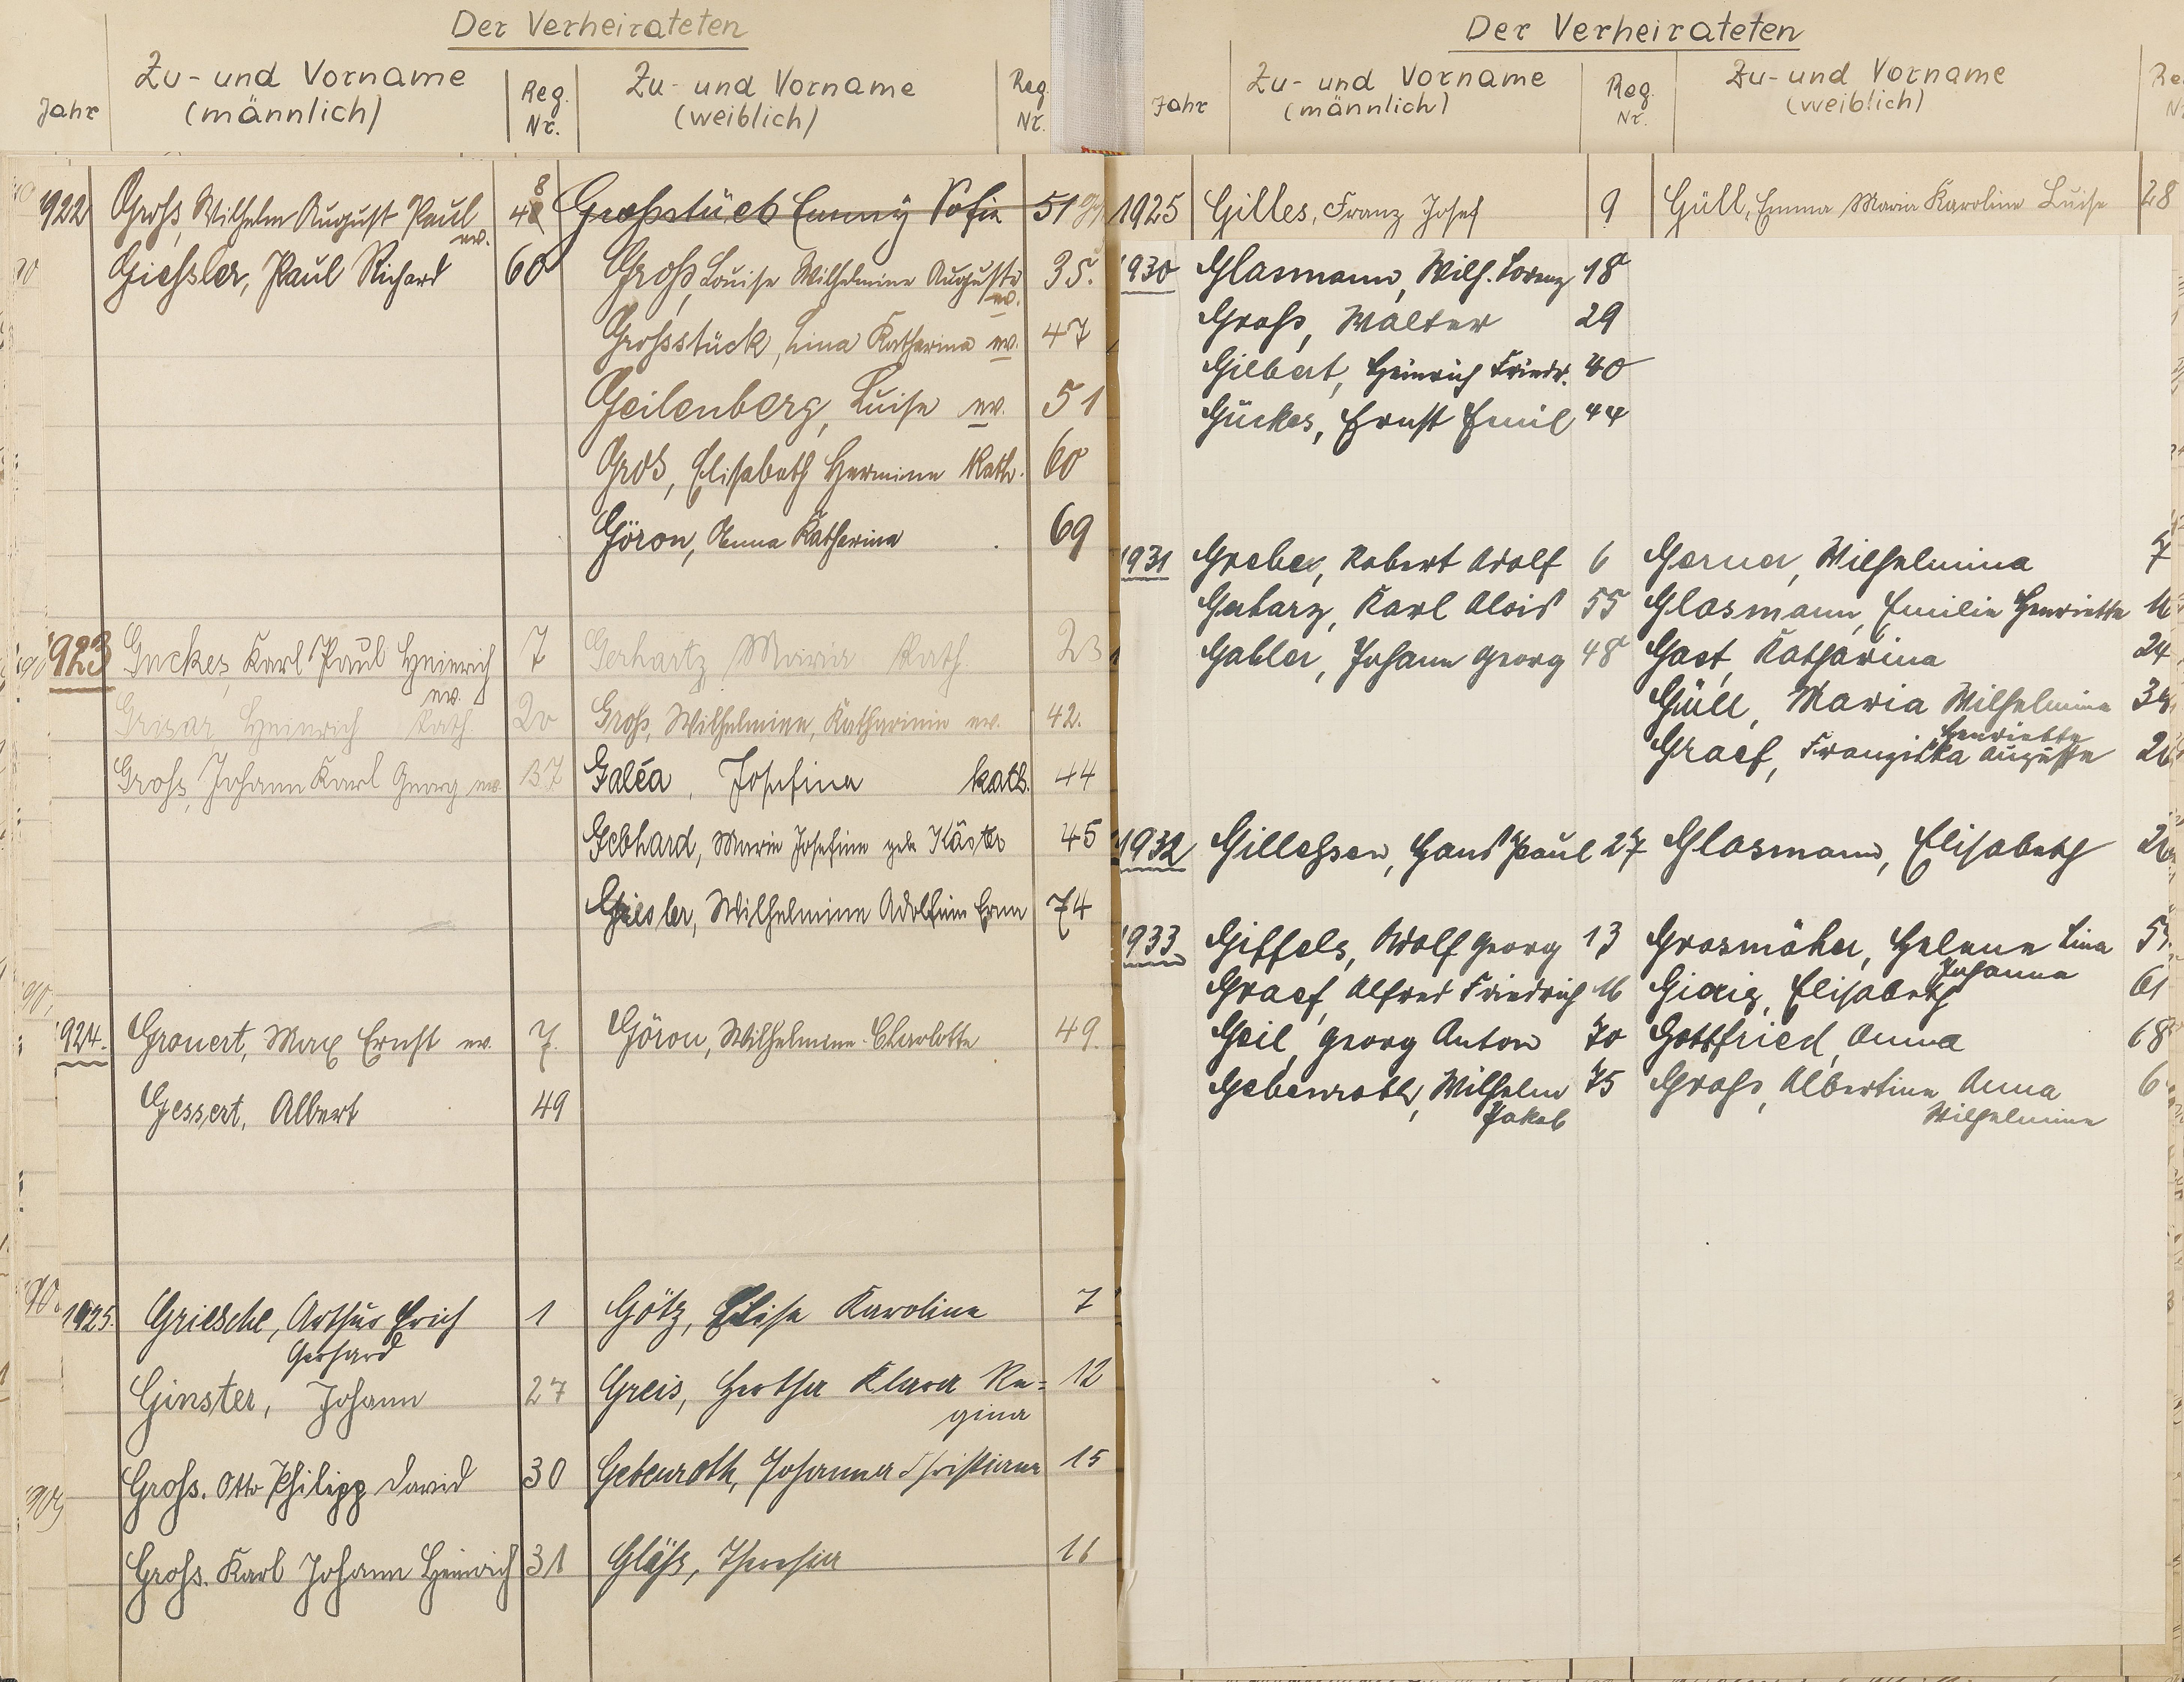 Der Verheirateten
Jahr Zu- und Vorname (männlich) Reg. Nr. Zu- und Vorname (weiblich) Reg. Nr.
1922 Groß, Wilhelm August Paul ev. 48 Großstück Emmy Sofie 51
Gießler, Paul Richard 60 Groß, Louise Wilhelmine Auguste ev. 35.
Grossstück, Lina Katharina ev. 47
Geilenberg, Luise ev. 51
Gros, Elisabeth Hermine Kath. 60
Göron, Anna Katharina 69
1923 Guckes Karl Paul Heinrich ev. 7 Gerhartz Maria Kath. 23
Heinrich Kath. 20 Groß, Wilhelmine, Katharinie ev. 42.
Groß, Johann Karl Georg ev. 37 Galéa, Josefina kath. 44
Gebhard, Marie Josefine geb. 45
Giesler, Wilhelmine Adolfine Erna 74
1924. Grauert, Max Ernst ev. 7. Göron, Wilhelmine Charlotte 49.
Gessert, Albert 49
1925. Griesche, Arthur Erich 1 Götz, Elise Karoline 7
Gerhard
Ginster, Johann 27 Greis, Hertha Klara Re= 12
gina
Groß. Otto Philipp David 30 Gebenroth, Johanna Christiane 15
Groß. Karl Johann Heinrich 31 Gläß, Theresia 16
Der Verheirateten
Jahr Zu- und Vorname (männlich) Reg. Nr. Zu- und Vorname (weiblich)
1925 Gilles, Franz Josef 9 Güll, Emma Maria Karoline Luise 28
1930 Glasmann, Wilh. Lorenz 18
Groß, Walter 29
Gilbert, Heinrich Friedr. 40
Gückes, Ernst Emil 44
1931 Grebe, Robert Adolf 6 Gerner, Wilhelmina 7
Gerharz, Karl Alois 55 Glasmann, Emilie Henriette 16
Gabler, Johann Georg 48 Gast, Katharina 24
Güll, Maria Wilhelmine
Henriette
Graef, Franziska Auguste
1932 Gilleßen, Hans Paul 27 Glasmann, Elisabeth
1933 Giffels, Adolf Georg 13 Grasmäher, Helene Lina
Johanna
Graef, Alfred Friedrich 16 Elisabeth 61
Geil, Georg Anton 70 Gottfried, Anna 68
Gebenroth, Wilhelm 75 Groß, Albertine Anna
Jakob Wilhelmine